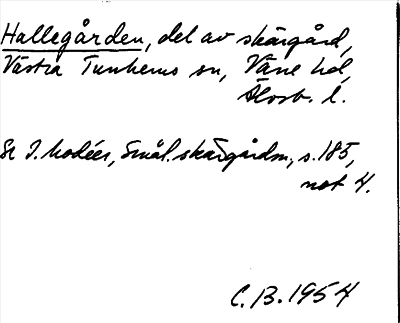 Hallegården, del av skärgård,
Västra Tunhems sn, Väne hd,
Älvsb. l.
Se I. Modéer, Smål. skärgårdsn., s. 185,
not 4.
C. B. 1954